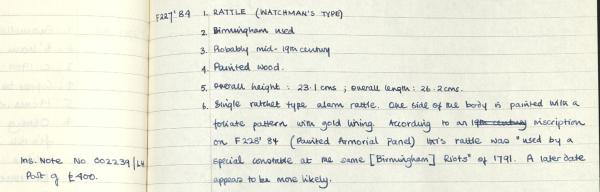 F227'84 1. RATTLE (WATCHMAN'S TYPE)
2. Birmingham used
3. Probably mid-19th century
4. Painted wood.
5. Overall height : 23.1 cms ; overall length : 26.2 cms.
6. Single ratchet type alarm rattle. One side of the body is painted with a
foliate pattern with gold lining. According to an 19th century inscription
on F228'84 (Painted Armorial Panel) this rattle was "used by a
special constable at the same [Birmingham] Riots" of 1791. A later date
appears to be more likely.
Ins. Note No 002239/LH
Part of £400.